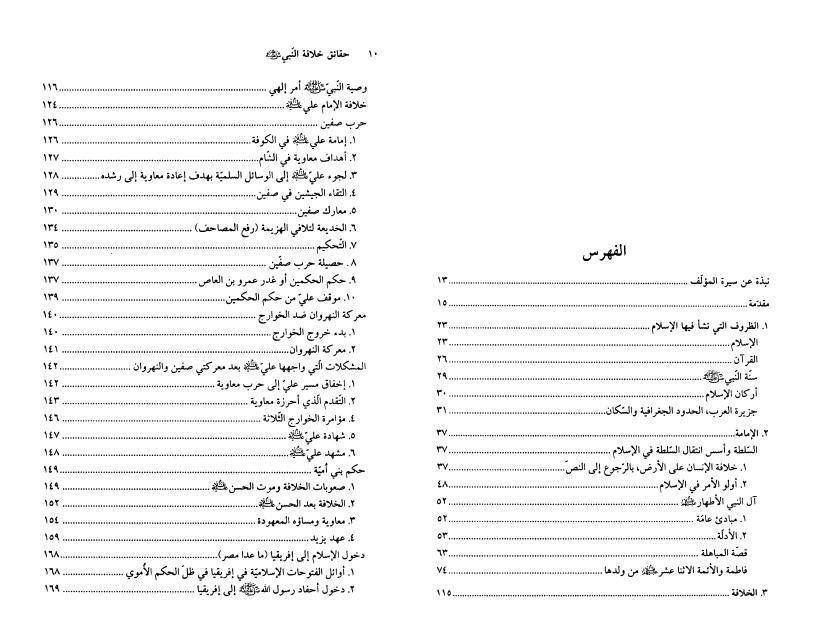 الفهرس
نبذة عن سيرة المؤلّف ... ١٣
مقدّمة ... ١٥
١. الظروف التي نشأ فيها الإسلام ... ٢٣
الإسلام ... ٢٣
القرآن ... ٢٦
سنّة النّبيّ ﷺ ... ٢٩
أركان الإسلام ... ٣٠
جزيرة العرب، الحدود الجغرافية والسّكان ... ٣١
٢. الإمامة ... ٣٧
السّلطة وأسس انتقال السّلطة في الإسلام ... ٣٧
١. خلافة الإنسان على الأرض، بالرّجوع إلى النصّ ... ٣٧
٢. أولو الأمر في الإسلام ... ٤٨
آل النبي الأطهار ... ٥٢
١. مبادئ عامّة ... ٥٢
٢. الأدلّة ... ٥٣
قصّة المباهلة ... ٦٣
فاطمة والأئمة الاثنا عشر من ولدها ... ٧٤
٣. الخلافة ... ١١٥
١٠ حقائق خلافة النّبي ﷺ
وصية النّبيّ ﷺ أمر إلهي ... ١١٦
خلافة الإمام علي ... ١٢٤
حرب صفين ... ١٢٦
١. إمامة عليّ في الكوفة ... ١٢٦
٢. أهداف معاوية في الشّام ... ١٢٧
٣. لجوء عليّ إلى الوسائل السلميّة بهدف إعادة معاوية إلى رشده ... ١٢٨
٤. التقاء الجيشين في صفين ... ١٢٩
٥. معارك صفين ... ١٣٠
٦. الخديعة لتلافي الهزيمة (رفع المصاحف) ... ١٣٤
٧. التّحكيم ... ١٣٥
٨. حصيلة حرب صفّين ... ١٣٧
٩. حكم الحكمين أو غدر عمرو بن العاص ... ١٣٧
١٠. موقف عليّ من حكم الحكمين ... ١٣٩
معركة النهروان ضد الخوارج ... ١٤٠
١. بدء خروج الخوارج ... ١٤٠
٢. معركة النهروان ... ١٤١
المشكلات الّتي واجهها عليّ بعد معركتي صفين والنهروان ... ١٤٢
١. إخفاق مسير عليّ إلى حرب معاوية ... ١٤٢
٢. التّقدم الّذي أحرزه معاوية ... ١٤٣
٤. مؤامرة الخوارج الثّلاثة ... ١٤٦
٥. شهادة عليّ ... ١٤٧
٦. مشهد عليّ ... ١٤٨
حكم بني أميّة ... ١٤٩
١. صعوبات الخلافة وموت الحسن ... ١٤٩
٢. الخلافة بعد الحسن ... ١٥٢
٣. معاوية ومساؤه المعهودة ... ١٥٤
٤. عهد يزيد ... ١٥٩
دخول الإسلام إلى إفريقيا (ما عدا مصر) ... ١٦٨
١. أوائل الفتوحات الإسلاميّة في إفريقيا في ظلّ الحكم الأموي ... ١٦٨
٢. دخول أحفاد رسول الله ﷺ إلى إفريقيا ... ١٦٩